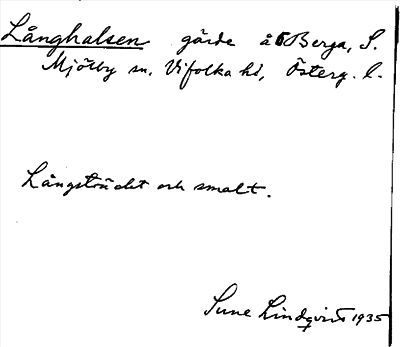 Långhalsen gärde å Berga, S.
Mjölby sn, Vifolka hd, Österg. l.
Långsträckt och smalt.
Sune Lindqvist 1935